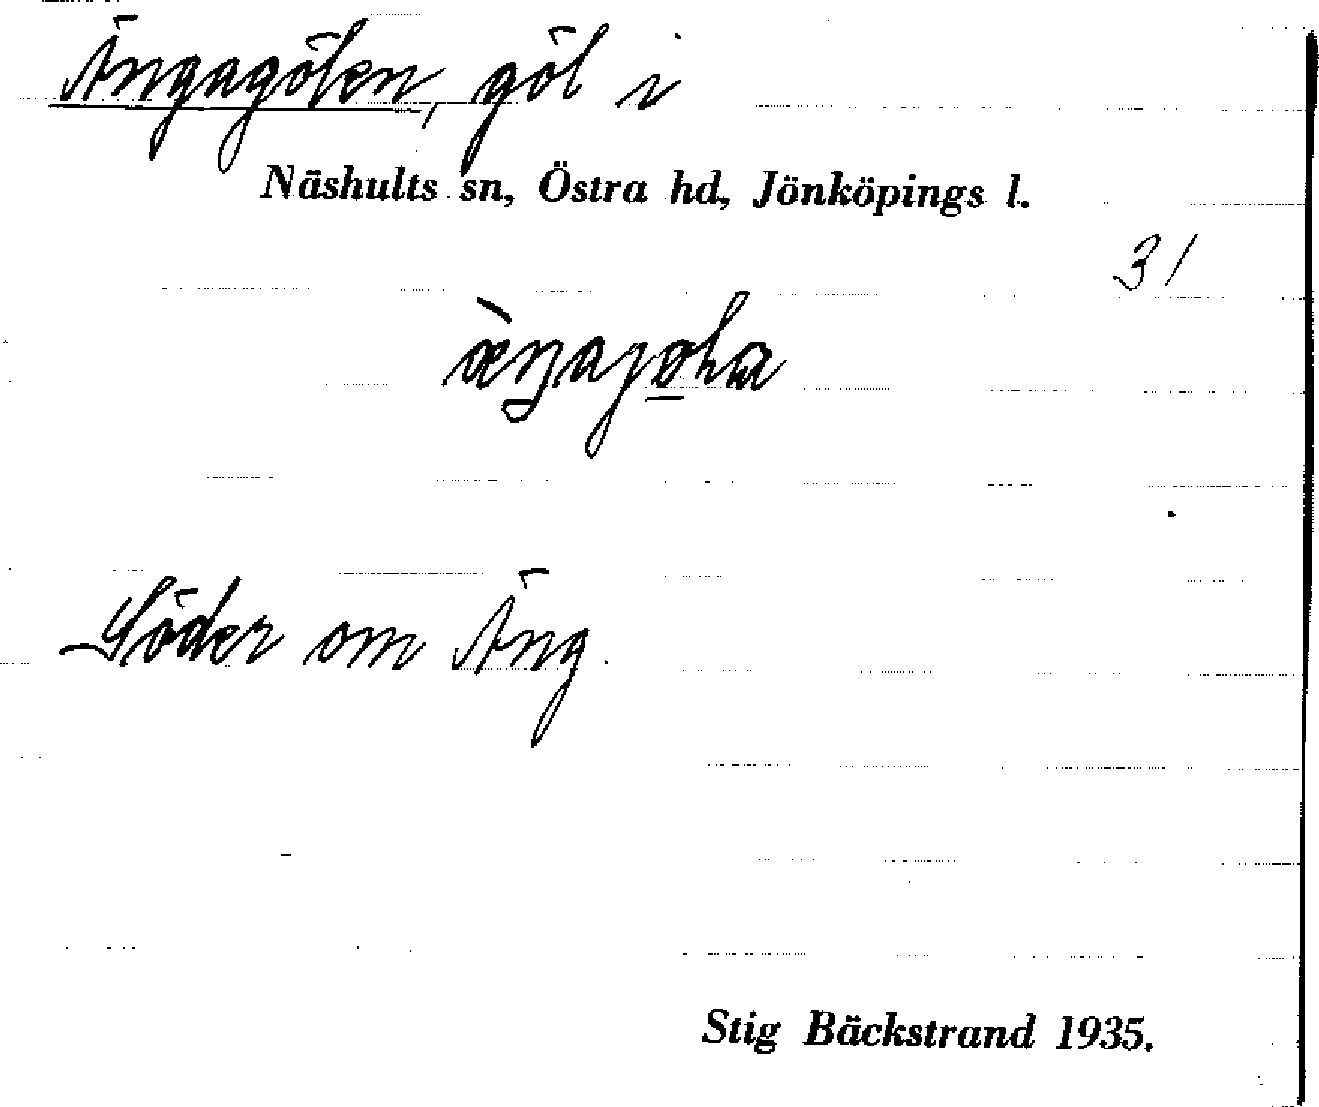 Ängagölen, göl i
Näshults sn, Östra hd, Jönköpings l.
31
Söder om Äng.
Stig Bäckstrand 1935.